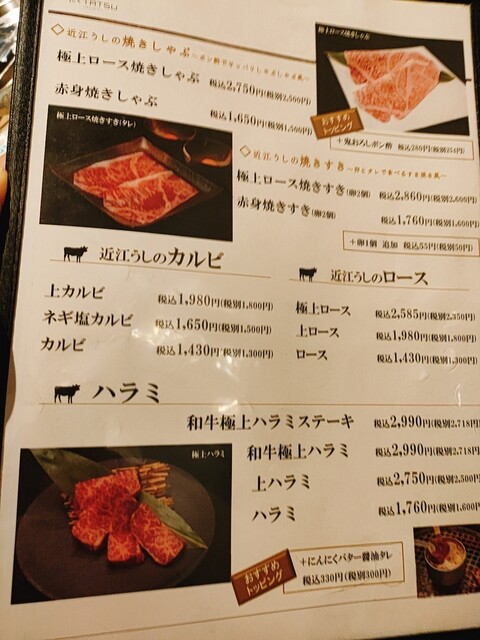 TATSU
◇近江うしの焼きしゃぶ
極上ロース焼きしゃぶ 税込2,750円(税別2,500円)
赤身焼きしゃぶ 税込1,650円(税別1,500円)
極上ロース焼きしゃぶ
おすすめ
トッピング
+鬼おろしポン酢 税込280円(税別254円)
極上ロース焼きすき(タレ)
◇近江うしの焼きすき
極上ロース焼きすき(卵2個) 税込2,860円(税別2,600円)
赤身焼きすき(卵2個) 税込1,760円(税別1,600円)
+卵1個 追加 税込55円(税別50円)
近江うしのカルビ
上カルビ 税込1,980円(税別1,800円)
ネギ塩カルビ 税込1,650円(税別1,500円)
カルビ 税込1,430円(税別1,300円)
近江うしのロース
極上ロース 税込2,585円(税別2,350円)
上ロース 税込1,980円(税別1,800円)
ロース 税込1,430円(税別1,300円)
ハラミ
和牛極上ハラミステーキ 税込2,990円(税別2,718円)
和牛極上ハラミ 税込2,990円(税別2,718円)
上ハラミ 税込2,750円(税別2,500円)
ハラミ 税込1,760円(税別1,600円
極上ハラミ
おすすめ
トッピング
+にんにくバター醤油タレ
税込330円(税別300円)